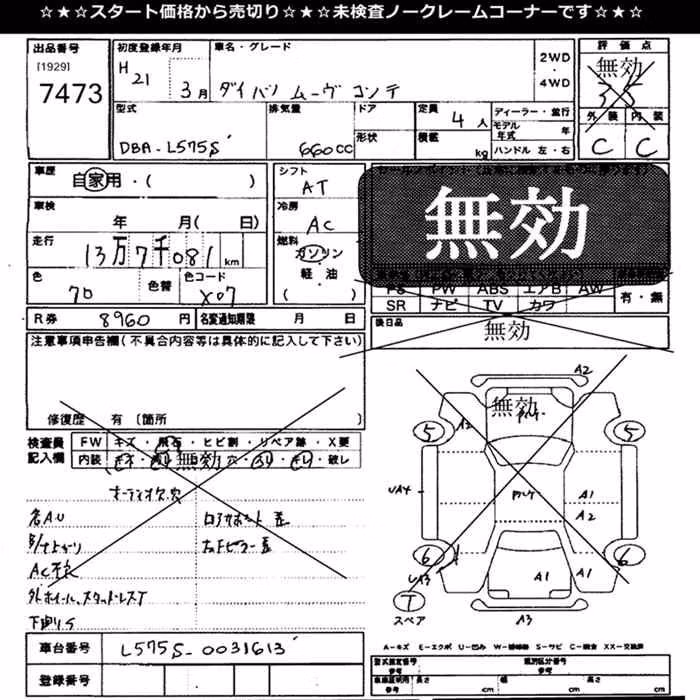 ☆★☆スタート価格から売切り☆★☆未検査ノークレームコーナーです☆★☆
出品番号
[1929]
7473
初度登録年月
H 21 3 月
車名・グレード
ダイハツ ムーヴ コンテ
2WD
4WD
評価点
無効
3.5
外装 内装
C C
型式
DBA-L575S
排気量
660 cc
ドア
形状
定員
4 人
積載
kg
ディーラー・並行
モデル年式 年
ハンドル 左・右
車歴
自家用・( )
車検
年 月( 日)
走行
13万7千081 km
色
70
色替
色コード
X07
シフト
AT
冷房
AC
燃料
ガソリン
軽・油
( )
無効
PS PW ABS エアB AW
SR ナビ TV カワ
有・無
R券 8960 円
名変通知期限 月 日
後日品
無効
注意事項申告欄(不具合内容等は具体的に記入して下さい)
修復歴 有 〔箇所 〕
検査員記入欄
FW キズ・飛石・ヒビ割・リペア跡・X要
内装 無効 穴・破レ
オーディオ欠品
AC
下廻りS
A2
無効
5
5
UA4
A1
A2
6
6
UA3
A1
A1
T
スペア
A3
車台番号
L575S-0031613
登録番号
A-キズ E-エクボ U-凹み S-サビ C-腐食 XX-交換済
型式指定番号
参考
類別区分番号
参考
長さ
cm
幅
cm
高さ
cm